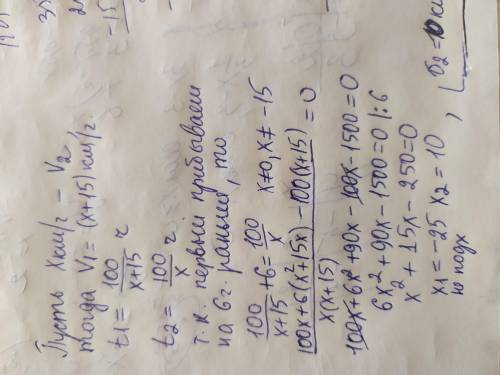 Пусть x км/г - V2,
тогда V1 = (x+15) км/г.
t1 = 100/(x+15) ч
t2 = 100/x ч.
т.к. первый прибываем
на 6г. раньше, то
100/(x+15) + 6 = 100/x x≠0, x≠ -15
(100x + 6(x² + 15x) - 100(x+15))/(x(x+15)) = 0
100x + 6x² + 90x - 100x - 1500 = 0
6x² + 90x - 1500 = 0 | : 6
x² + 15x - 250 = 0
x1 = -25 x2 = 10 , V2 = 10 км